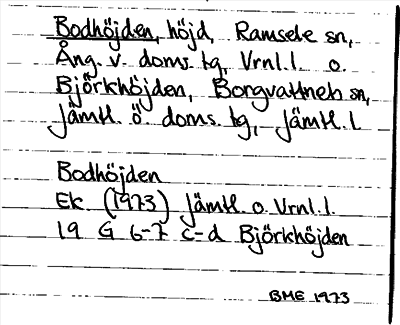 Bodhöjden, höjd, Ramsele sn,
Ång. v. doms. tg, Vrnl. l. o.
Björkhöjden, Borgvattnets sn,
Jämtl. ö. doms. tg, Jämtl. l
Bodhöjden
Ek (1973) Jämtl. o. Vrnl. l.
19 G 6-7 c-d Björkhöjden
BME 1973